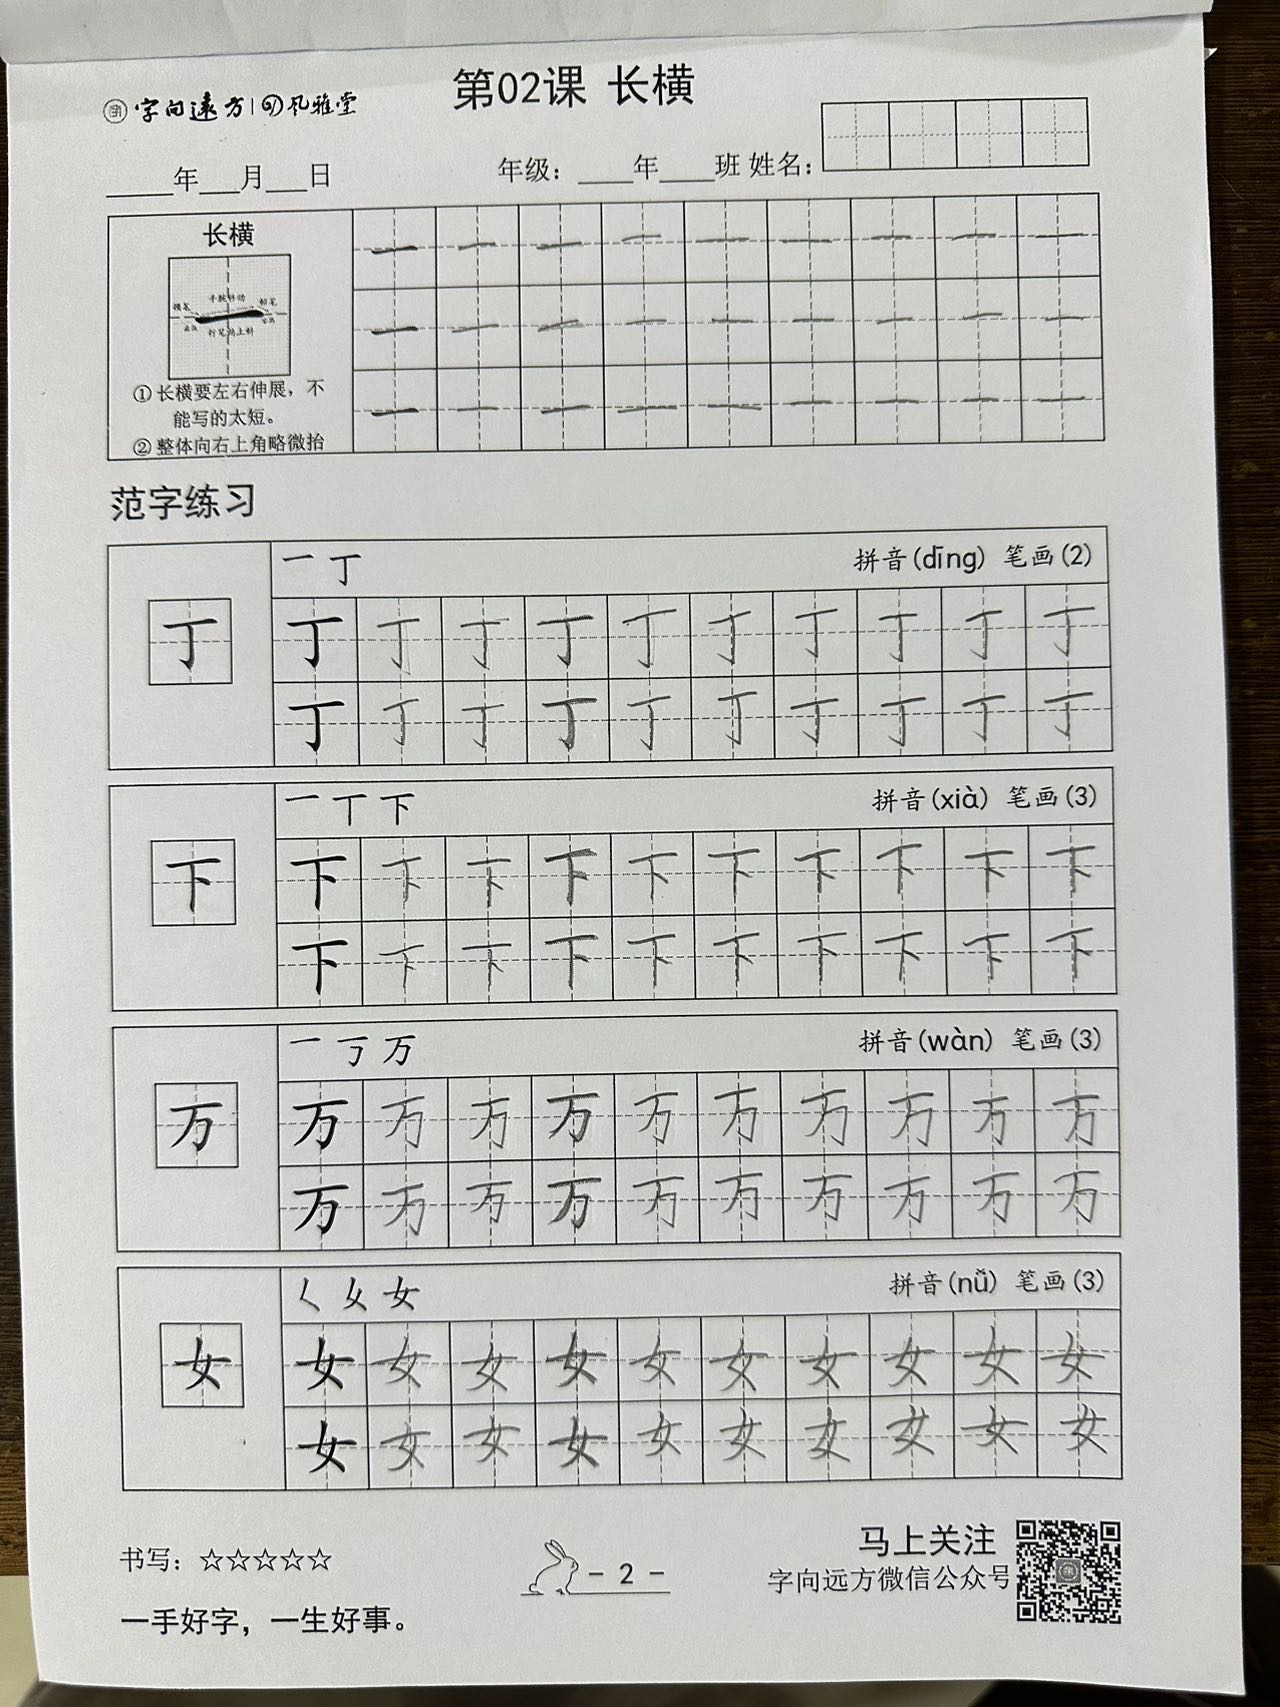 字向远方|风雅堂
第02课 长横
____年___月___日 年级：____年____班 姓名：
长横
手腕斜动
顿笔
行笔略上斜
一 一 一 一 一 一 一 一 一
一 一 一 一 一 一 一 一 一
一 一 一 一 一 一 一 一 一
①长横要左右伸展，不
能写的太短。
②整体向右上角略微抬
范字练习
一 丁 拼音(dīng) 笔画(2)
丁
丁 丁 丁 丁 丁 丁 丁 丁 丁 丁
丁 丁 丁 丁 丁 丁 丁 丁 丁 丁
一 丅 下 拼音(xià) 笔画(3)
下
下 下 下 下 下 下 下 下 下 下
下 下 下 下 下 下 下 下 下 下
一 丂 万 拼音(wàn) 笔画(3)
万
万 万 万 万 万 万 万 万 万 万
万 万 万 万 万 万 万 万 万 万
ㄑ 女 女 拼音(nǚ) 笔画(3)
女
女 女 女 女 女 女 女 女 女 女
女 女 女 女 女 女 女 女 女 女
书写：☆☆☆☆☆
一手好字，一生好事。
- 2 -
马上关注
字向远方微信公众号